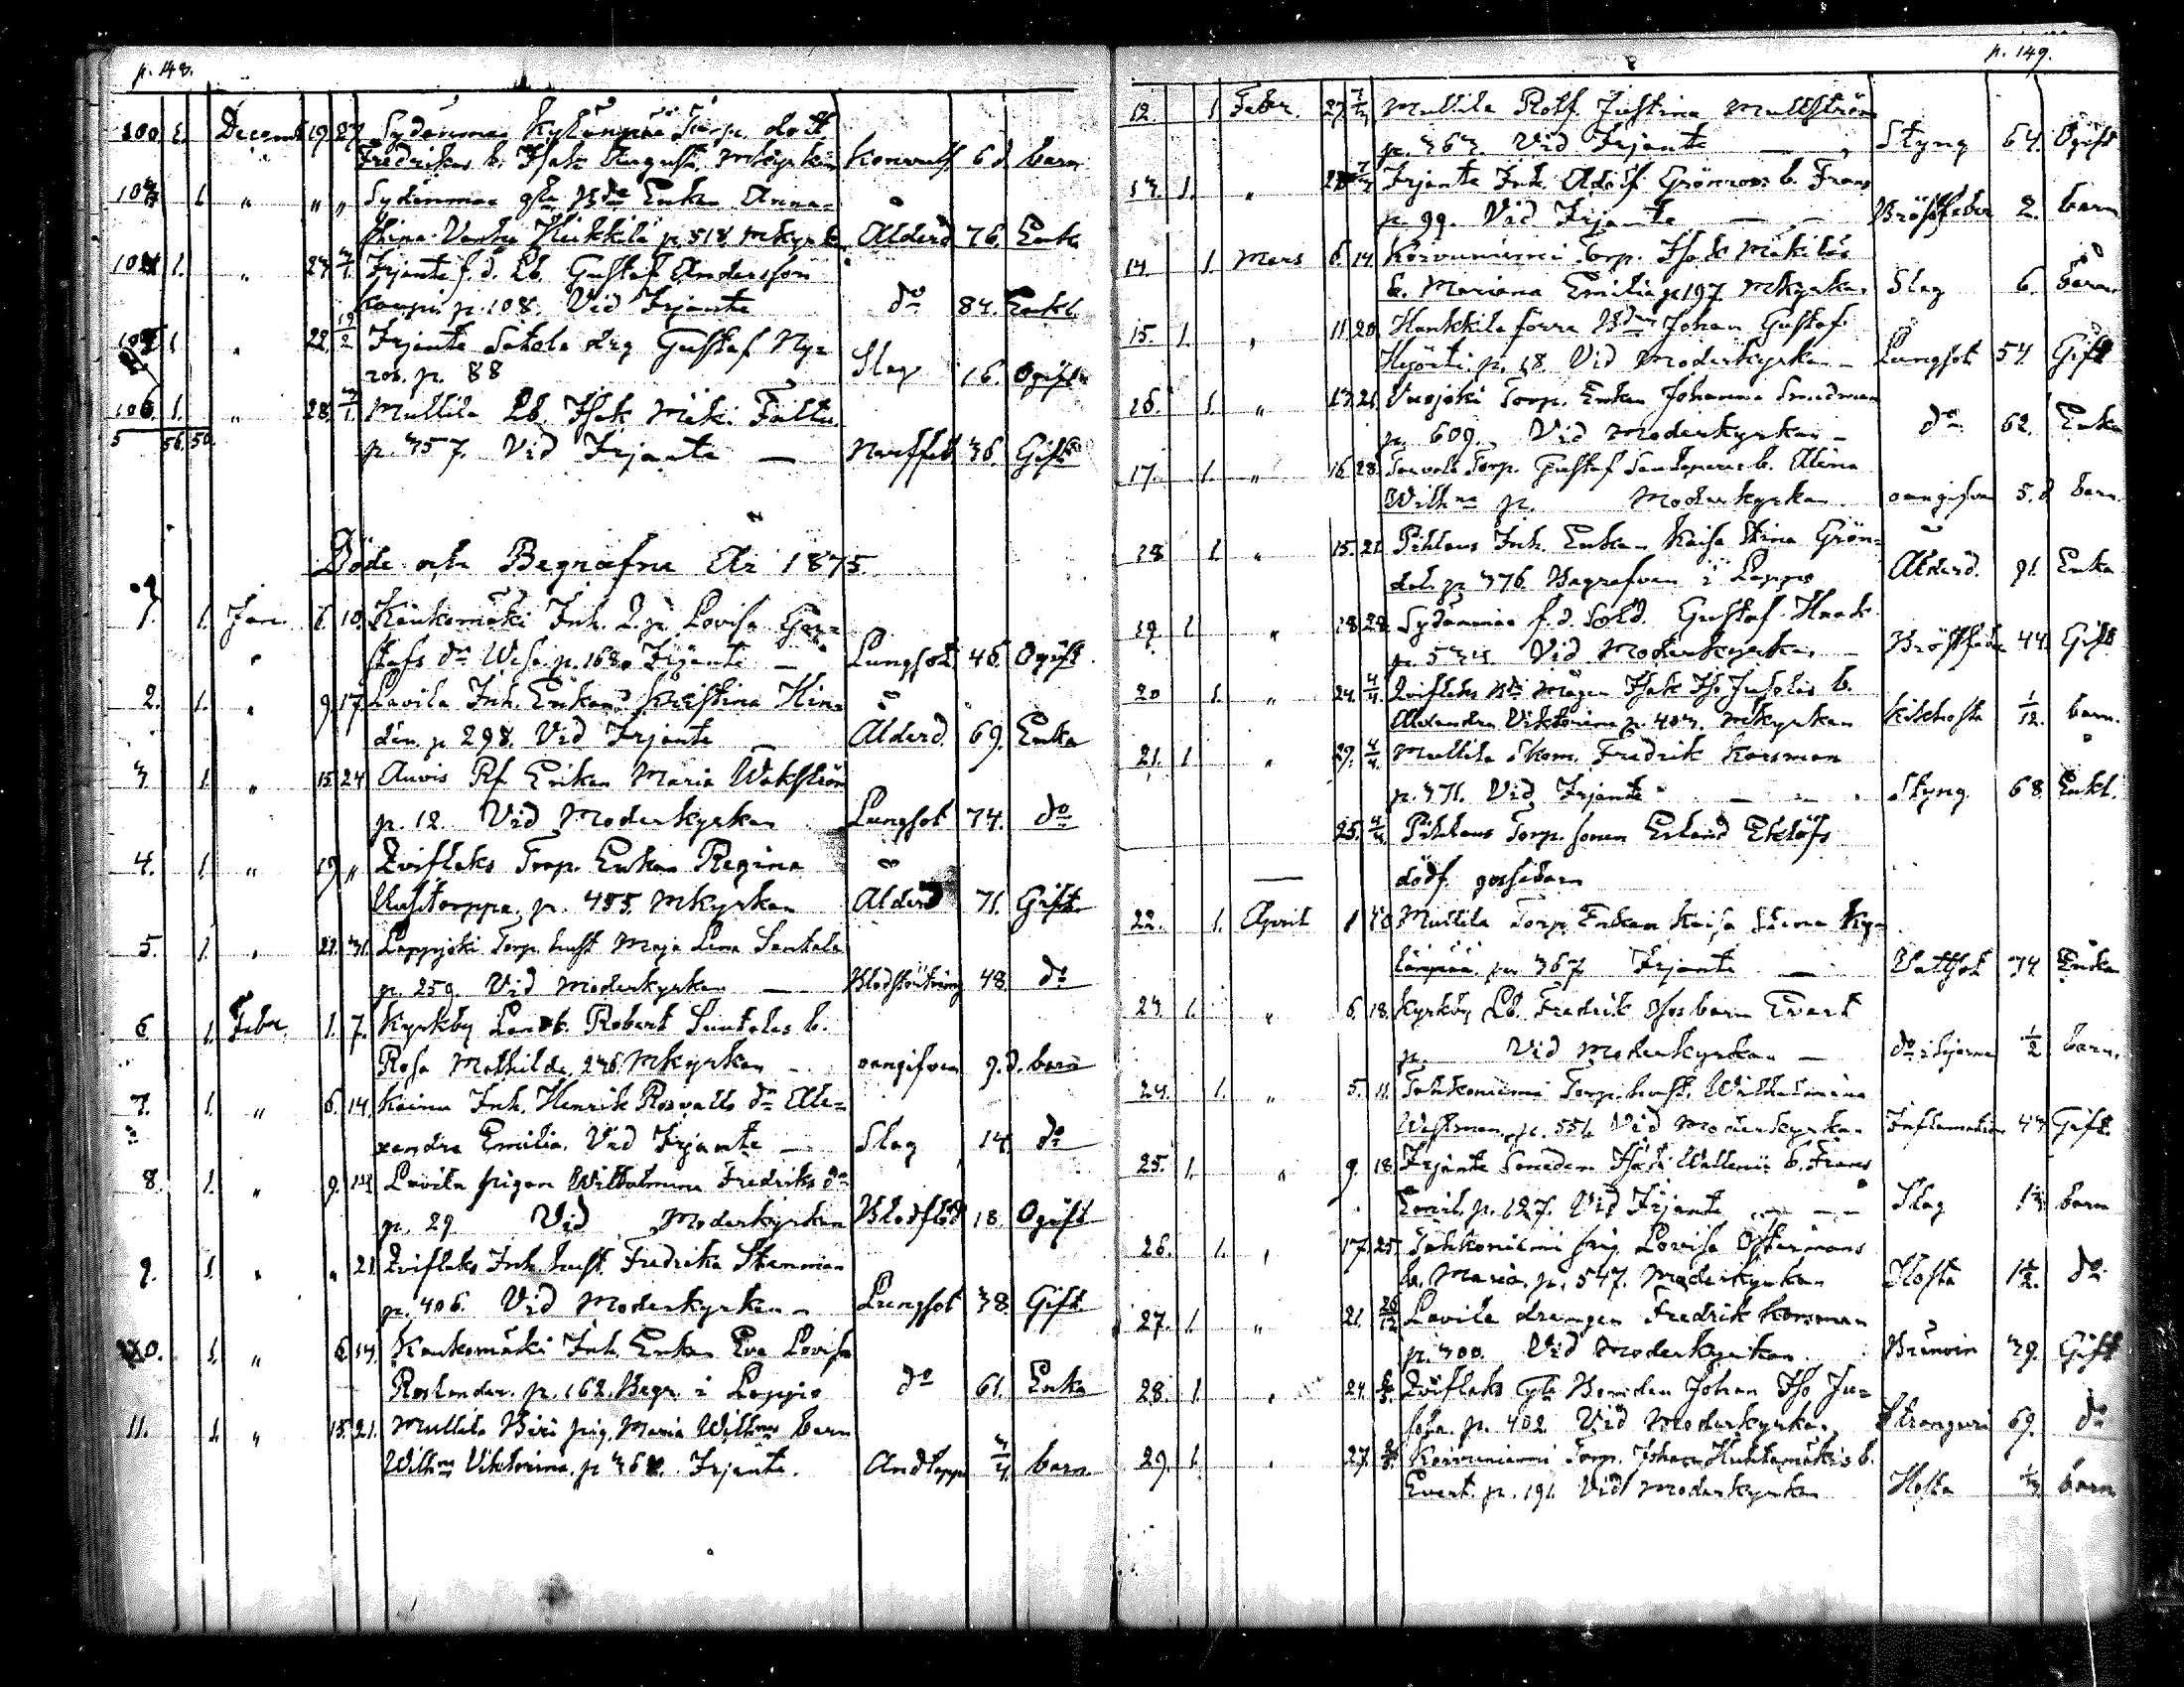 p. 148.
100. 1. Decemb 19 27 Sydänmaa Kylänpää Torp. dott.
Fredrikas b. Isak August. Mkyrkan Konvuls. 6 d. barn
103 1. " " " Sydänmaa gla Bde Enkan Anna-
Stina Heikkilä p. 518 Mkyrk. Ålderd. 76. Enka
104 1. " 23 3/1. Irjante f. d. Lb. Gustaf Andersson
Kaupi p. 108. Vid Irjante do 84. Enkl.
105 1 " 22. 19/2 Irjante Sohola drg Gustaf Ny-
roos. p. 88 Slag 16. Ogift
106. 1. " 28. 3/1. Mullila Lb. Isak Mik:
p. 357. Vid Irjante — Nerffeb 36. Gift
5 56. 50.
Döde och Begrafne År 1875.
1. 1. Jan. 6. 10. Kaukomäki Inh. Q. p. Lovisa Gu-
stafs dr p. 168. Irjante — Lungsot 46. Ogift.
2. 1. " 9 17. Lavila Inh. Enkan Kristina Hin-
dén. p. 298. Vid Irjante — Ålderd. 69. Enka
3 1. " 15 24 Auvis Rf. Enkan Maria Wahlström
p. 12. Vid Moderkyrkan Lungsot 74. do
4. 1. " 19 " Zvifleks Torp. Enkan Regina
Uusitorppa, p. 455. Mkyrkan Ålderd 71. Gift
5. 1. " 21. 31. Lappijoki Torp. hust Maja Lena Santala
p. 259. Vid Moderkyrkan — Blodstörtning 48. do
6 1. Febr. 1. 7. Kyrkby Landb. Robert Suntelas b.
Rosa Mathilda, 236. Mkyrkan — oangifven 9. d. barn
7. 1. " 6. 14. Kaimu Inh. Henrik Rosvalls dr Alle-
xandra Emilia. Vid Irjante — Slag 14. do
8. 1. " 9. 14. Lavila pigan Wilhelmina Fredriks dr
p. 29 Vid Moderkyrkan Blodflöd 18. Ogift
9. 1. " " 21 Zvifleks Inh. hust. Fredrika Stenman
p. 406. Vid Moderkyrkan — Lungsot 38. Gift
10. 1. " 6. 14. Kaukomäki Inh. Enkan Eva Lovisa
Roslender. p. 162. Begr. i Lappio do 61. Enka
11. 1. " 15. 21. Mullila Biri pig. Maria Wilhmas barn
Wilhma Viktorina. p 368. Irjante. Andtäppa 3/4 barn.
p. 149.
12. 1. Febr. 27. 7/3 Mullila Rotf. Justina Mullström
p. 363. Vid Irjante — Styng 64. Ogift
13. 1. " 28 7/3 Irjante Inh. Adolf Grönroos b. Frans
p. 99. Vid Irjante — — Bröstfeber 2. barn
14. 1. Mars 6. 14. Korvuniemi Torp. Isak Mäkiläs
b. Mariana Emilia p 197 Mkyrkan Slag 6. barn
15. 1. " 11. 20. Hankkila förre Bden Johan Gustaf
p. 18. Vid Moderkyrkan — Lungsot 54. Gift
16. 1. " 13. 21. Vuojoki Torp. Enkan Johanna Sandman
p. 609. Vid Moderkyrkan — do 62. Enka
17. 1. " 16. 28. Torp. Gustaf b. Alina
Wilhma p. Moderkyrkan oangifven 5. d barn.
18 1. " 15. 21. Pihlaus Inh. Enkan Kaisa Stina Grön-
dal. p 376. Begrafven i Lappo Ålderd. 91. Enka
19. 1. " 18 28. Sydänmaa f. d. Sold. Gustaf Haak
p. 533 Vid Moderkyrkan — Bröstfeber 44. Gift
20 1. " 24. 4/4. Zvifleks Bds Mågen Isak Iso Jusolas b.
Allexandra Viktorina p. 403. Mkyrkan Kikhosta 1/12. barn.
21. 1 " 29. 4/4. Mullila Skom. Fredrik Korsman
p. 371. Vid Irjante — — Styng 68. Enkl.
25. 4/4. Pihlaus Torp. sonen Erland Eklöfs
— dödf. gossebarn
22. 1. April 1 10. Mullila Torp. Enkan Kaisa Stina Ky-
länpää. p. 367 Irjante — Vattsot 74 Enka
23. 1. " 6. 18. Kyrkby Lb. Fredrik barn Evert
p. Vid Moderkyrkan — do i hjerna 1/2 barn.
24. 1. " 5. 11. Tahkoniemi Torp. hust. Wilhelmina
Westman, p. 551. Vid Moderkyrkan Inflamation 43 Gift.
25. 1. " 9. 18 Irjante Smeden Isak Wallenii b. Frans
Emil. p. 127. Vid Irjante — — Slag barn
26. 1. " 17. 25. Tahkoniemi pig. Lovisa Östermans
b. Maria. p. 547. Moderkyrkan Hosta 1 1/2. do
27. 1. " 21. 26/12 Lavila drengen Fredrik Korsman
p. 300. Vid Moderkyrkan Brännvin 39. Gift
28. 1 " 24. Zvifleks gla Bonden Johan Iso Ju-
sola. p. 402 Vid Moderkyrkan Stranguri 69. do
29. 1. " 27. Korvuniemi Torp. Johan Huhtamäkis b.
Evert. p. 191. Vid Moderkyrkan Hosta barn